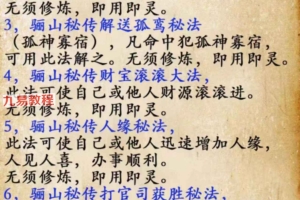 无须修炼，即用即灵。
3，骊山秘传解送孤鸾秘法，
（孤神寡宿），凡命中犯孤神寡宿，
可用此法解之。无须修炼，即用即灵。
4，骊山秘传财宝滚滚大法，
此法可使自己或他人财源滚滚进。
无须修炼，即用即灵。
5，骊山秘传人缘秘法，
此法可使自己或他人迅速增加人缘，
人见人喜，办事顺利。
无须修炼，即用即灵。
6，骊山秘传打官司获胜秘法，
九易教程